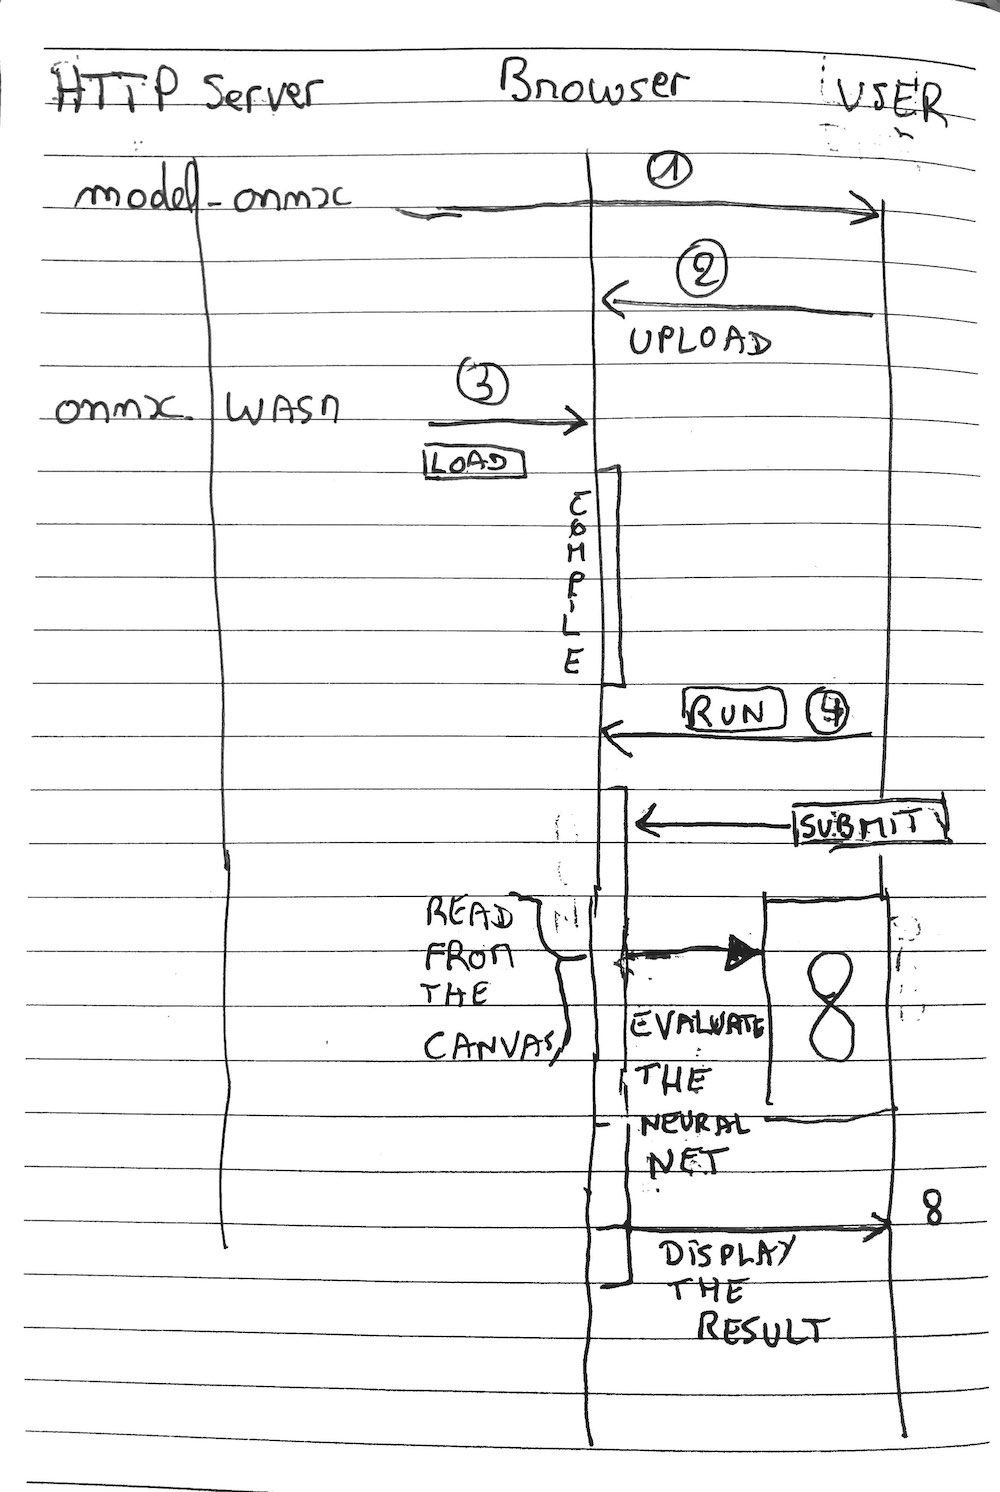 HTTP Server Browser USER
model-onnx
1
2
UPLOAD
3
onnx. WASM
LOAD
COMPILE
RUN 4
SUBMIT
READ
FROM
THE
CANVAS
8
EVALUATE
THE
NEURAL
NET
8
DISPLAY
THE
RESULT